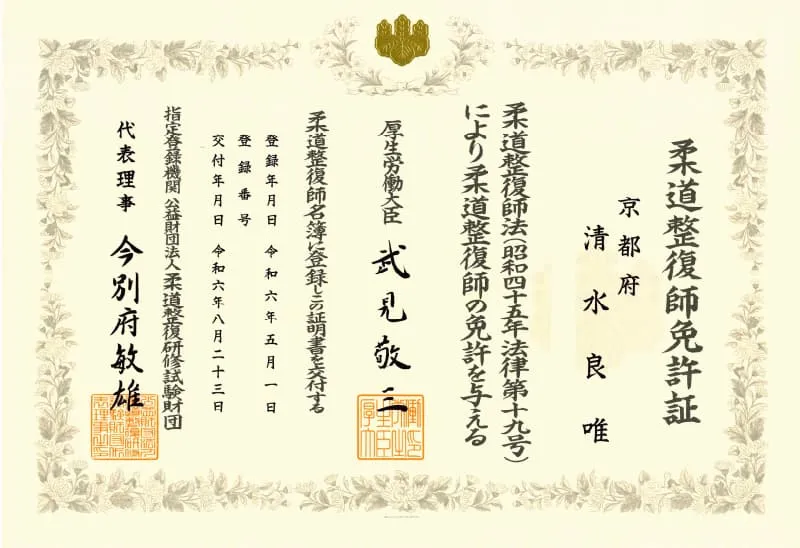 柔道整復師免許証
京都府
清水良唯
柔道整復師法(昭和四十五年法律第十九号)
により柔道整復師の免許を与える
厚生労働大臣 武見敬三
柔道整復師名簿に登録しこの証明書を交付する
登録年月日 令和六年五月一日
登録番号
交付年月日 令和六年八月二十三日
指定登録機関 公益財団法人 柔道整復研修試験財団
代表理事 今別府敏雄